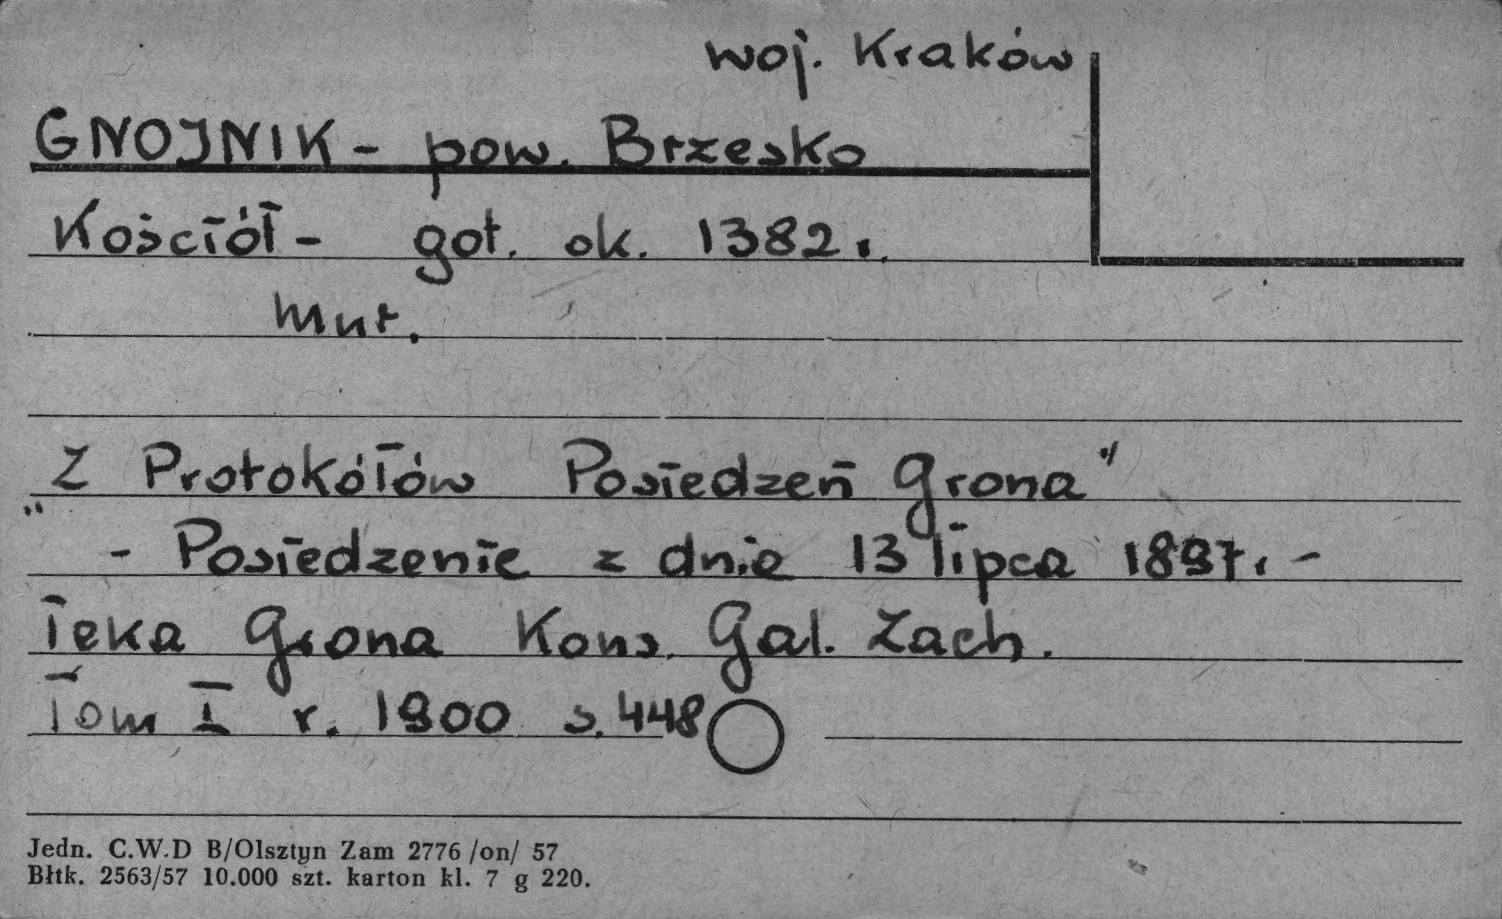 woj. Kraków
GNOJNIK - pow. Brzesko
Kościół - got. ok. 1382 r.
mur.
„Z Protokółów Posiedzeń Grona"
- Posiedzenie z dnia 13 lipca 1897r. -
Teka Grona Kons. Gal. Zach.
Tom I r. 1900 s. 448
Jedn. C.W.D B/Olsztyn Zam 2776 /on/ 57
Błtk. 2563/57 10.000 szt. karton kl. 7 g 220.